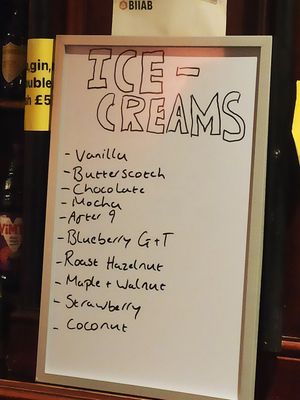 BIIAB
gin,
ouble
h £5
ICE-
CREAMS
- Vanilla
- Butterscotch
- Chocolate
- Mocha
- After 9
- Blueberry G+T
- Roast Hazelnut
- Maple + Walnut
- Strawberry
- Coconut
VIMT